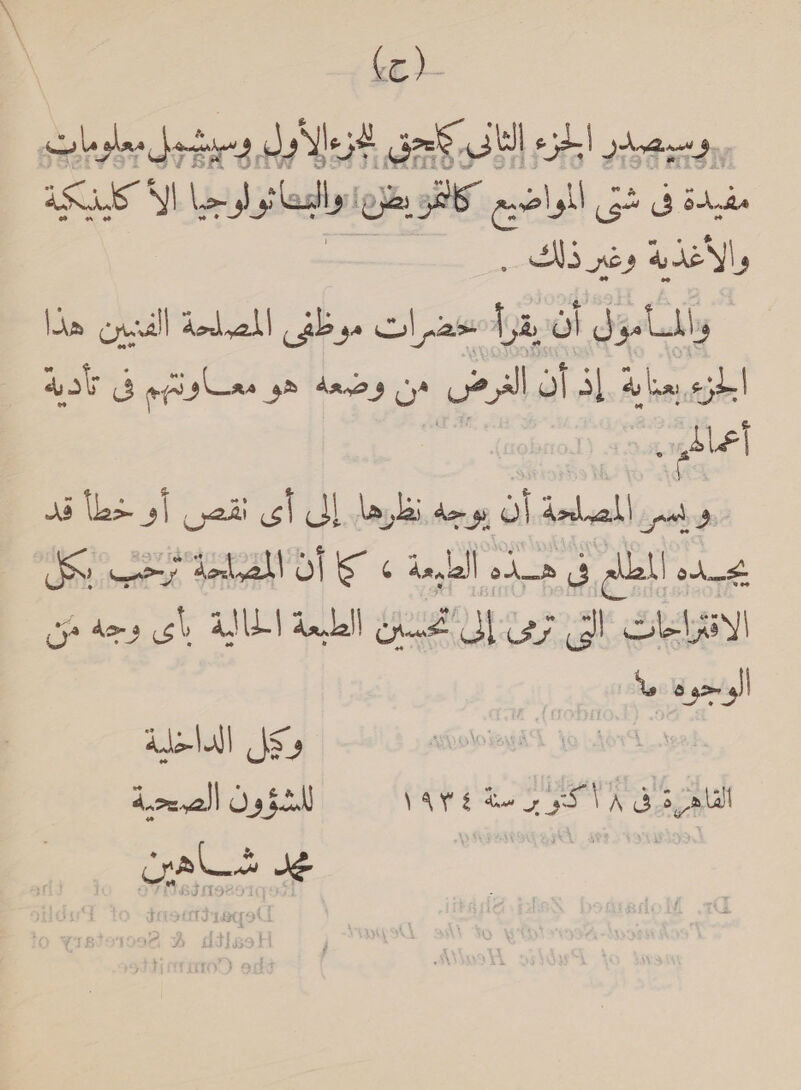 (ح)
وسيصدر الجزء الثانى كلحق للجزء الأول وسيشمل معلومات
مفيدة فى شتى المواضيع كالتمريض والبـاثولوجيا الأكلينيكية
والأغذية وغير ذلك .
والمـأمول أن يقرأ حضرات موظفى المصلحة الفنيين هذا
الجزء بعناية إذ أن الغرض من وضعه هو معـاونتهم فى تأدية
أعمالهم .
ويسر المصلحة أن يوجه نظرها إلى أى نقص أو خطأ قد
يجـده المطلع فى هـذه الطبعة ، كما أن المصلحة ترحب بكل
الاقتراحات التى ترمى إلى تحسين الطبعة الحالية بأى وجه من
الوجوه ما
وكيل الداخلية
القاهرة فى ٨ اكتوبر سنة ١٩٣٤
للشؤون الصحية
محمد شـاهين